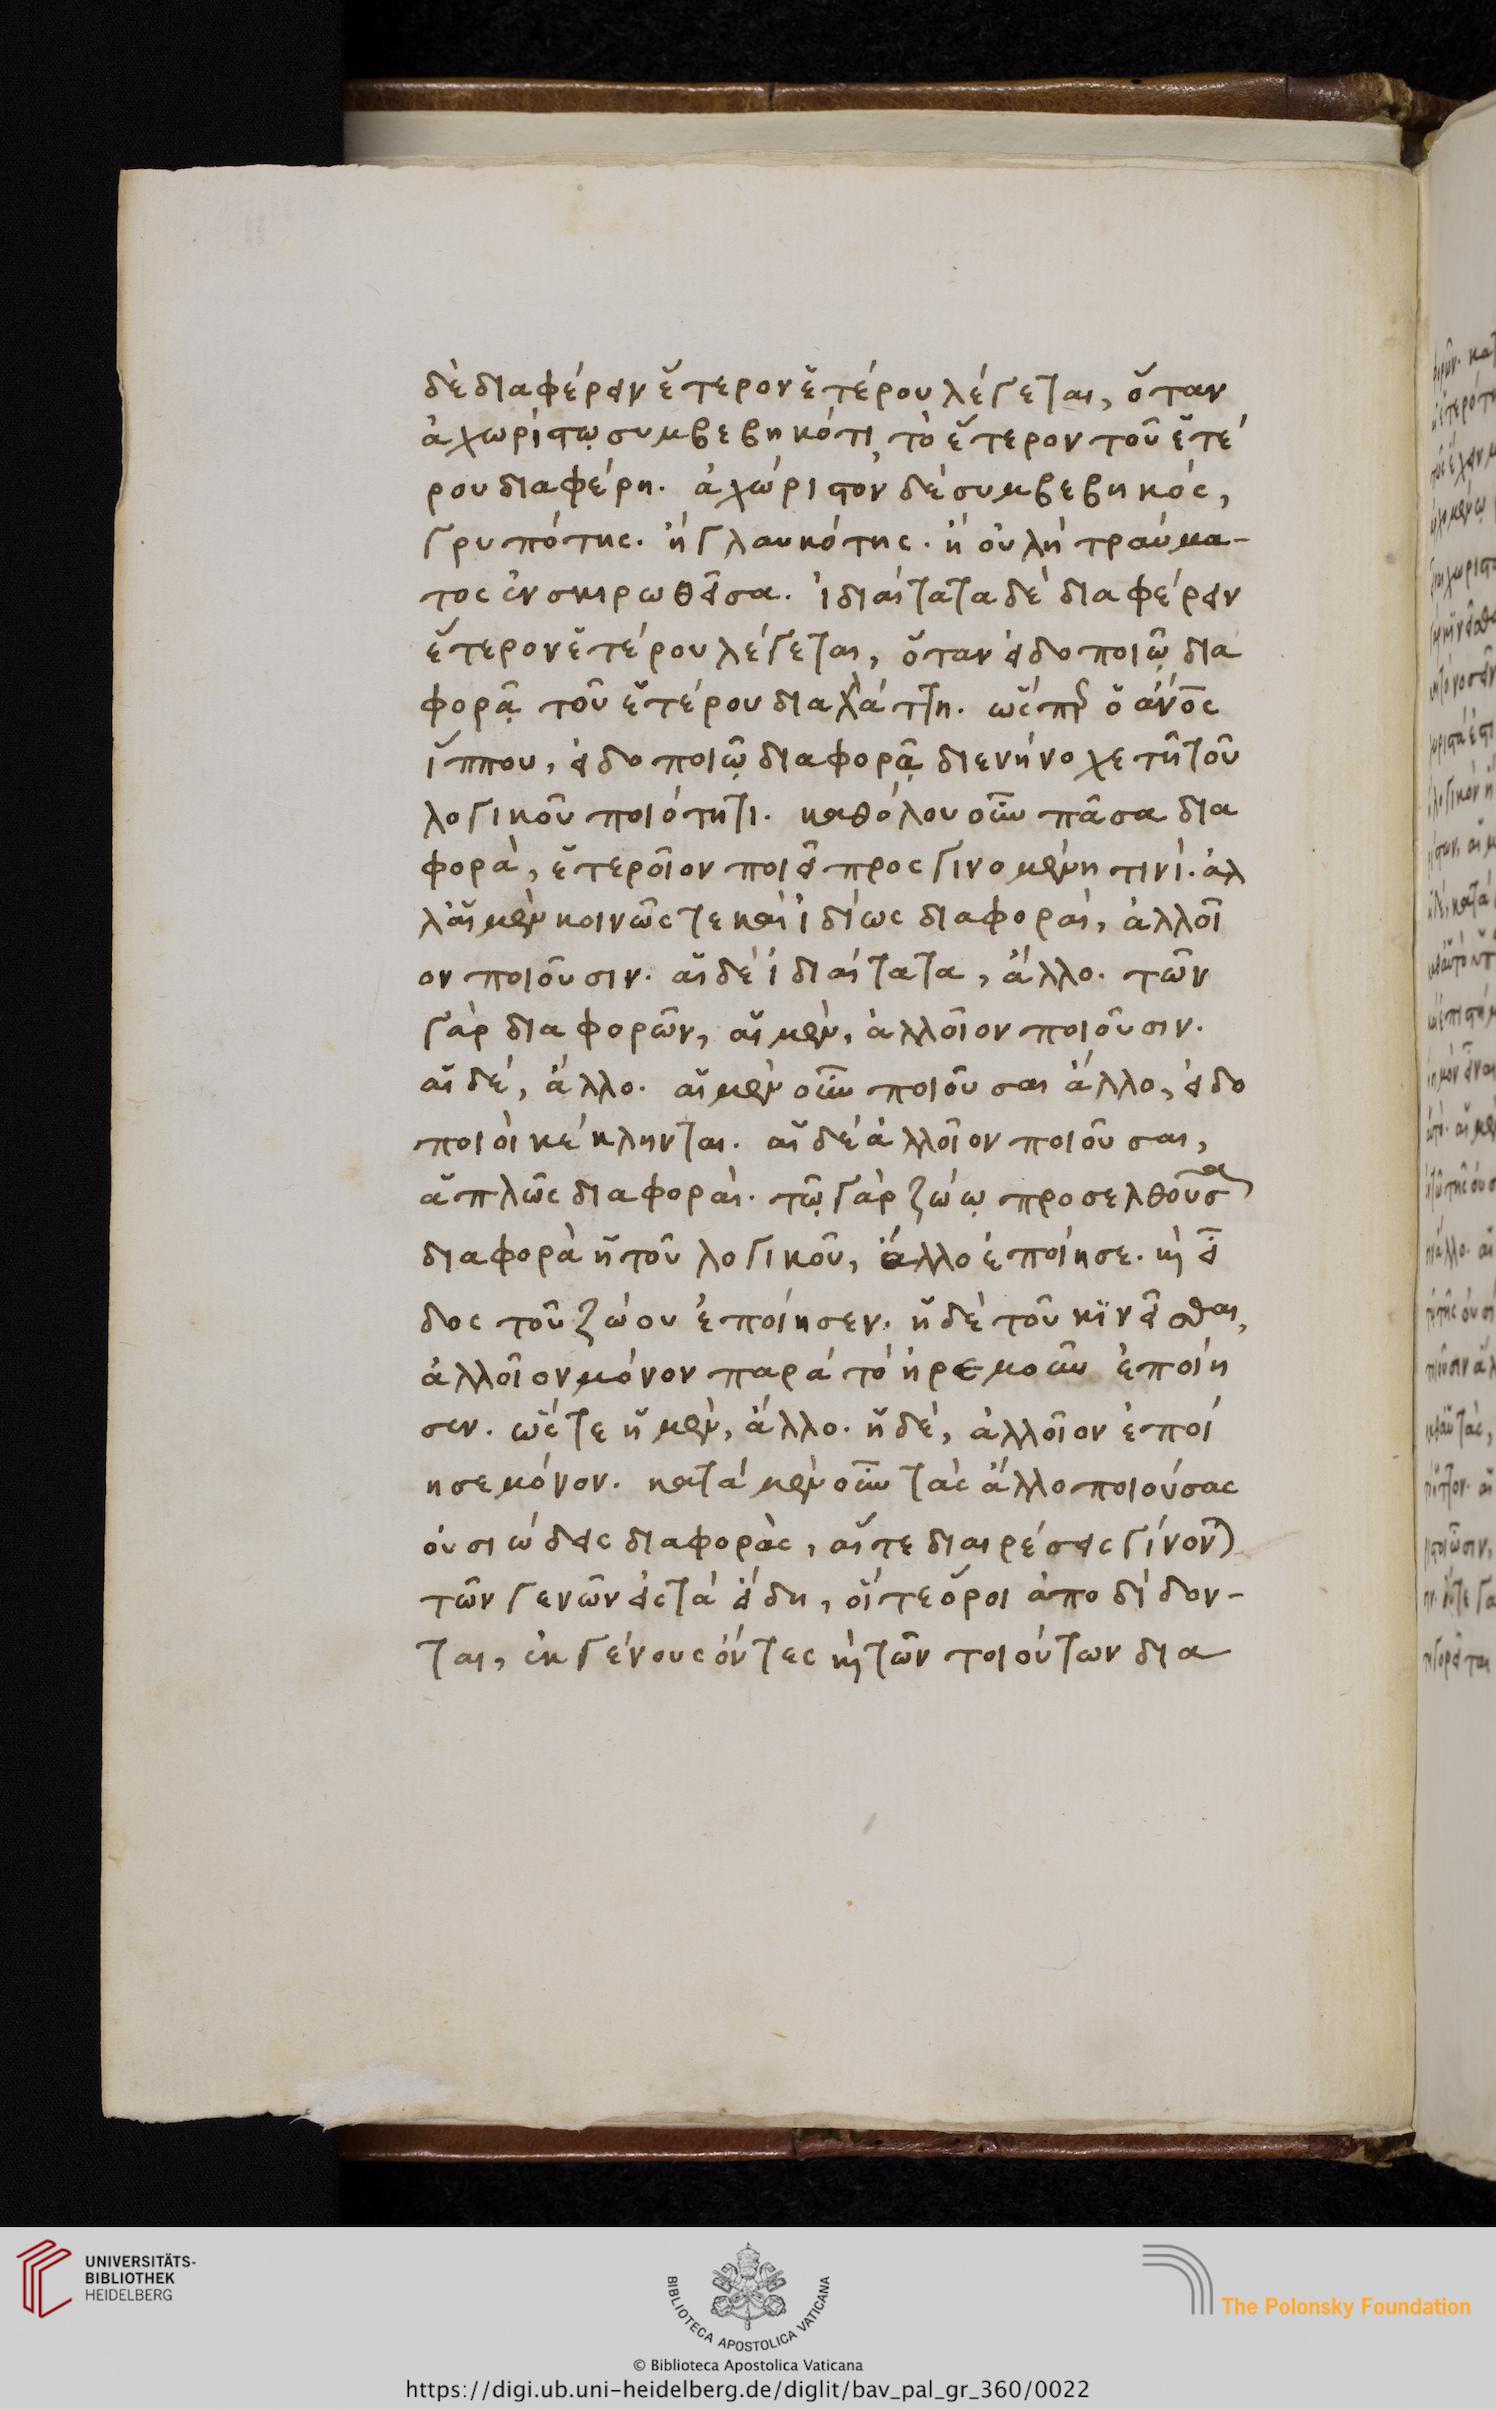 δὲ διαφέρειν ἕτερον ἑτέρου λέγεται, ὅταν
ἀχωρίστῳ συμβεβηκότι, τὸ ἕτερον τοῦ ἑτέ
ρου διαφέρη. ἀχώριστον δὲ συμβεβηκός,
γρυπότης. ἢ γλαυκότης. ἢ οὐλὴ τραύμα-
τος ἐνσκιρωθεῖσα. ἰδιαίτατα δὲ διαφέρειν
ἕτερον ἑτέρου λέγεται, ὅταν εἰδοποιῷ δια
φορᾷ τοῦ ἑτέρου διαλλάττη. ὥσπερ ὁ ἄνος
ἵππου, εἰδοποιῷ διαφορᾷ διενήνοχε τῆ τοῦ
λογικοῦ ποιότητι. καθόλου οὖν πᾶσα δια
φορὰ, ἑτεροῖον ποιεῖ προσγινομένη τινί. ἀλ
λ' αἱ μὲν κοινῶς τε καὶ ἰδίως διαφοραὶ, ἀλλοῖ
ον ποιοῦσιν. αἱ δὲ ἰδιαίτατα, ἄλλο. τῶν
γὰρ διαφορῶν, αἱ μὲν, ἀλλοῖον ποιοῦσιν.
αἱ δὲ, ἄλλο. αἱ μὲν οὖν ποιοῦσαι ἄλλο, εἰδο
ποιοὶ κέκληνται. αἱ δὲ ἀλλοῖον ποιοῦσαι,
ἁπλῶς διαφοραὶ. τῷ γὰρ ζώῳ προσελθοῦσα
διαφορὰ ἡ τοῦ λογικοῦ, ἄλλο ἐποίησε. κὶ εἶ
δος τοῦ ζώου ἐποίησεν. ἡ δὲ τοῦ κϊνεῖσθαι,
ἀλλοῖον μόνον παρὰ τὸ ἠρεμοῦν ἐποίη
σεν. ὥστε ἡ μὲν, ἄλλο. ἡ δὲ, ἀλλοῖον ἐποί
ησε μόνον. κατὰ μὲν οὖν τὰς ἄλλο ποιούσας
οὐσιώδεις διαφορὰς, αἵ τε διαιρέσεις γίνονται
τῶν γενῶν εἰς τὰ εἴδη, οἵ τε ὅροι ἀποδίδον-
ται, ἐκ γένους ὄντες κὶ τῶν τοιούτων δια
UNIVERSITÄTS-
BIBLIOTHEK
HEIDELBERG
BIBLIOTECA APOSTOLICA VATICANA
The Polonsky Foundation
© Biblioteca Apostolica Vaticana
https://digi.ub.uni-heidelberg.de/diglit/bav_pal_gr_360/0022